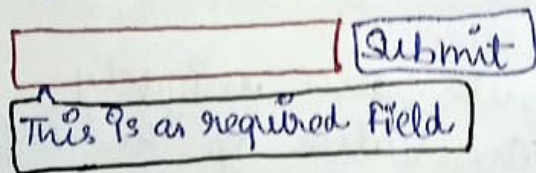 Submit
This is as required Field